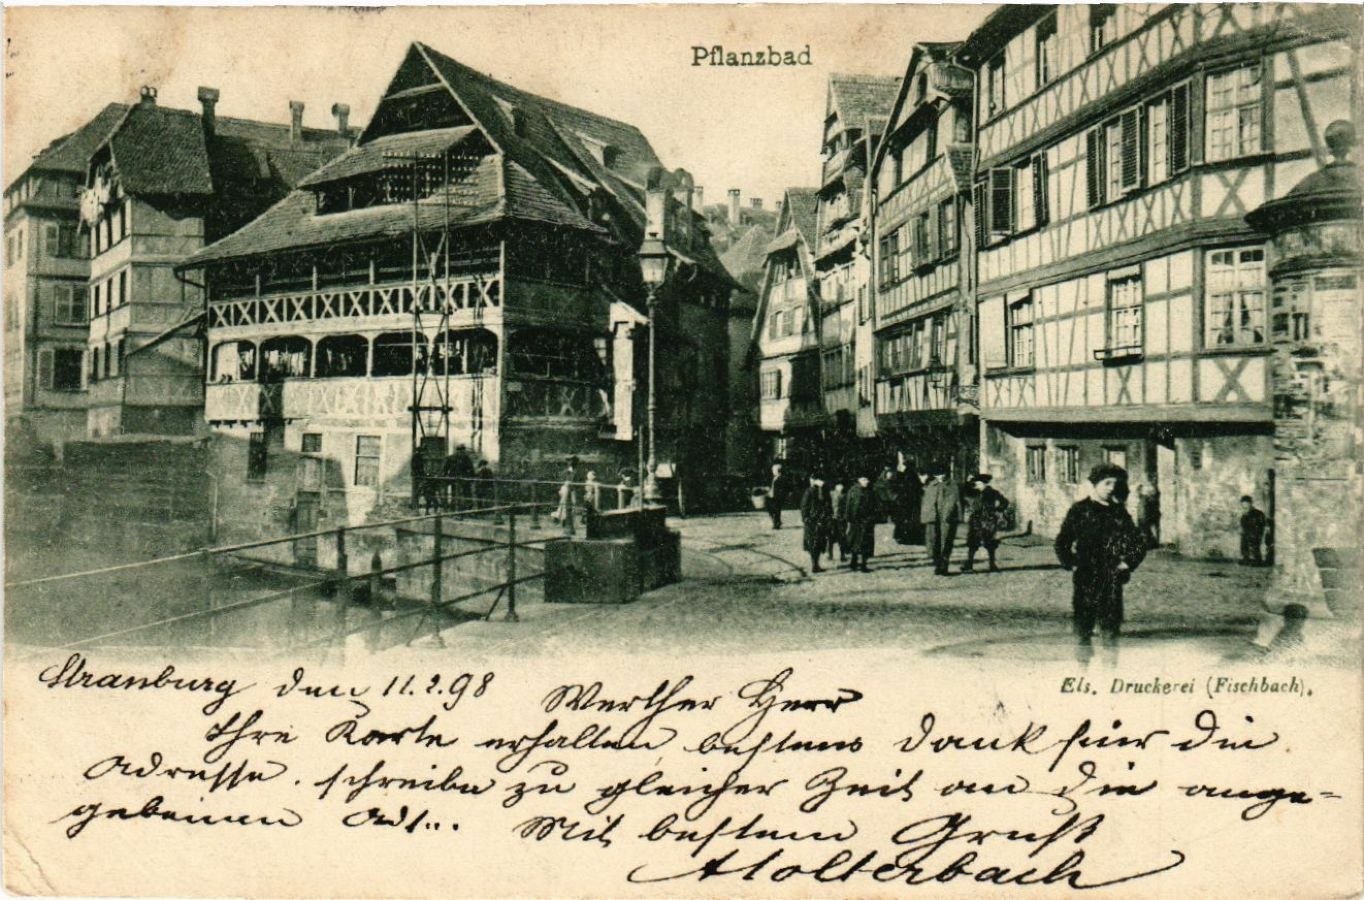 Pflanzbad
Els. Druckerei (Fischbach).
Strassburg den 11.2.98 Werther Herr
Ihre Karte erhalten, bestens dank für die
Adresse. schreibe zu gleicher Zeit an die ange-
gebenen Mit bestem Gruß